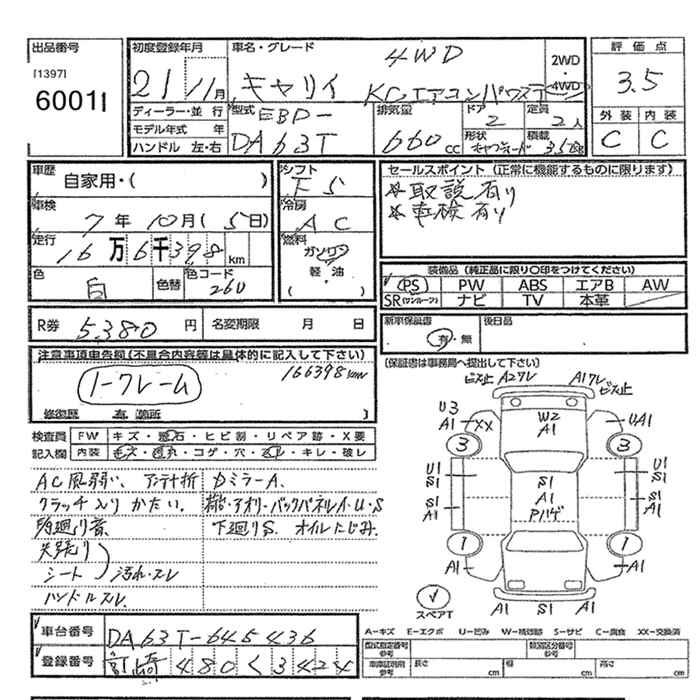 出品番号
[1397]
60011
初度登録年月
21 11月
ディーラー・並 行
モデル年式 年
ハンドル 左・右
車名・グレード
4WD
キャリイ KCエアコンパワステ
2WD
・
4WD
型式
EBD-
DA63T
排気量
660cc
ドア
2
定員
2人
形状
積載
350kg
評価点
3.5
外装 内装
C C
車歴
自家用・( )
車検
7年 10月 (5日)
走行
16万6千398km
色
白
色替
色コード
26U
シフト
F5
冷房
AC
燃料
ガソリン
軽・油
( )
セールスポイント(正常に機能するものに限ります)
※取説有り
※車検有り
装備品(純正品に限り〇印をつけてください)
PS PW ABS エアB AW
SR(サンルーフ) ナビ TV 本革
R券 5,380円 名変期限 月 日
新車保証書
有・無
後日品
(保証書は事務局へ提出して下さい)
注意事項申告欄(不具合内容等は具体的に記入して下さい)
ノークレーム
166398km
修復歴 有(箇所 )
検査員
記入欄
FW キズ・飛石・ヒビ割・リペア跡・X要
内装 キズ・汚れ・コゲ・穴・スレ・キレ・破レ
AC風弱い、アンテナ折
クラッチ入りかたい.
天張り
シート
汚れ・スレ
ハンドルスレ
DミラーA.
荷台・アオリ・バックパネルA・U・S
下廻りS. オイルにじみ.
ビス止 A2クレ A1クレ ビス止
U3
A1 XX
W2
A1
UA1
3 3
U1
S1
S1
A1
S1
A1
U1
S1
S1
A1
1 1
A1 A1
A1 S1 A1
スペアT
車台番号 DA63T-645436
登録番号 480 く 3424
A-キズ E-エクボ U-凹み W-補修跡 S-サビ C-腐食 XX-交換済
型式指定番号
参考
類別区分番号
参考
車庫証明用
参考
長さ cm 幅 cm 高さ cm